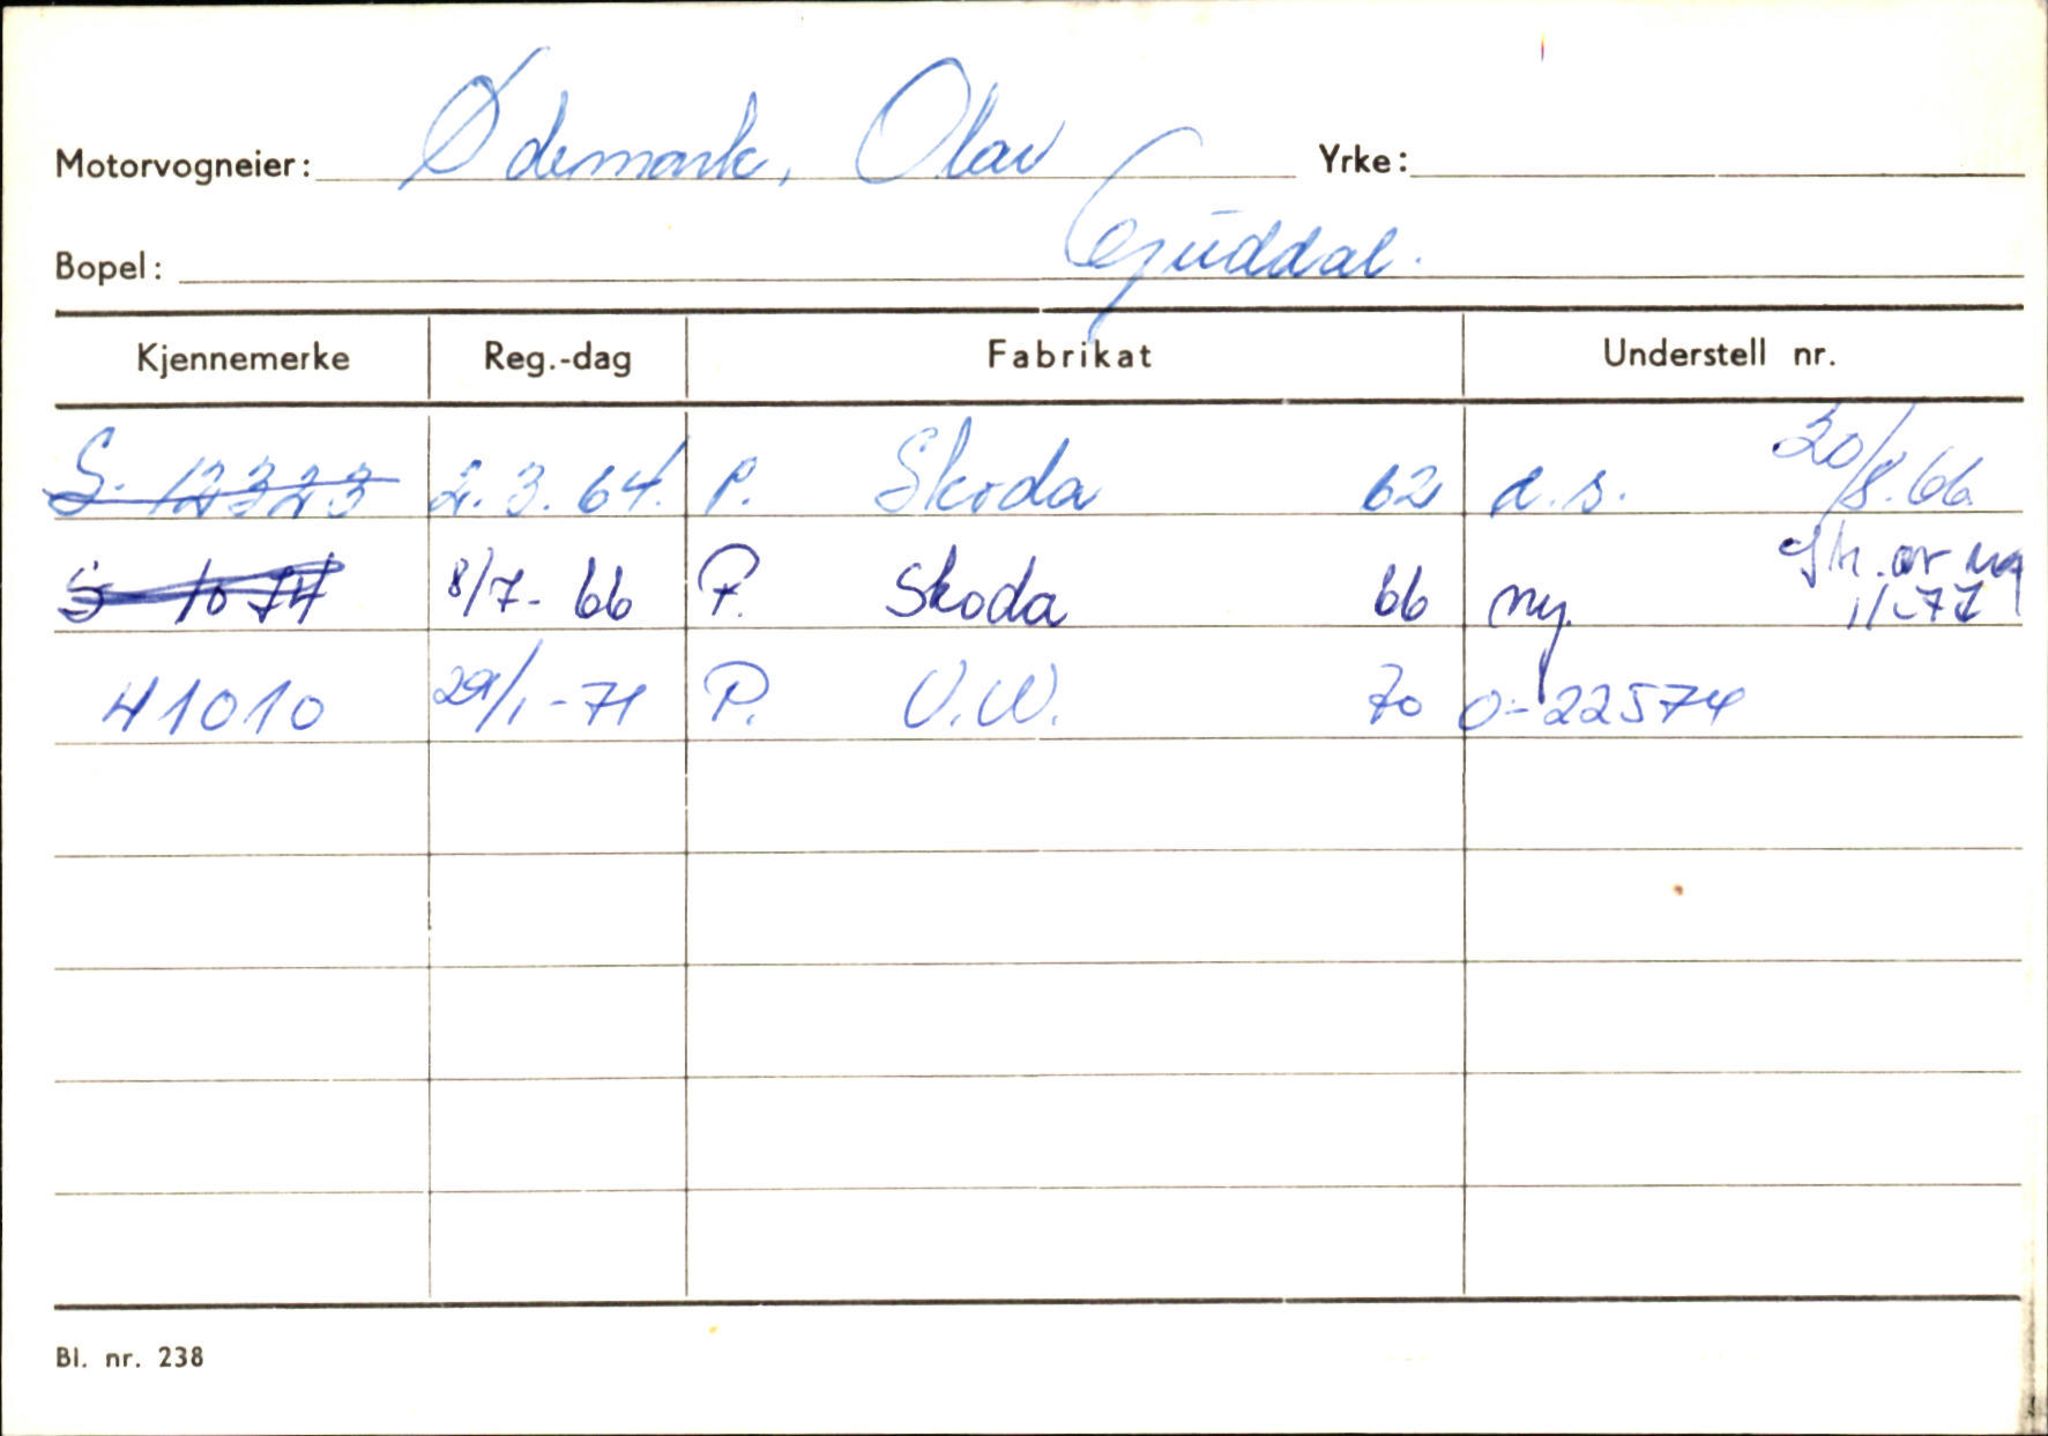 Motorvogneier: Ødemark, Olav Yrke:
Bopel: Guddal.
Kjennemerke Reg.-dag Fabrikat Understell nr.
S. 12323 2.3.64. P. Skoda 62 d.s. 30/8.66
S 1074 8/7-66 P. Skoda 66 ny.
11-71
41010 29/1-71 P. V.W. 70 0-22574
Bl. nr. 238